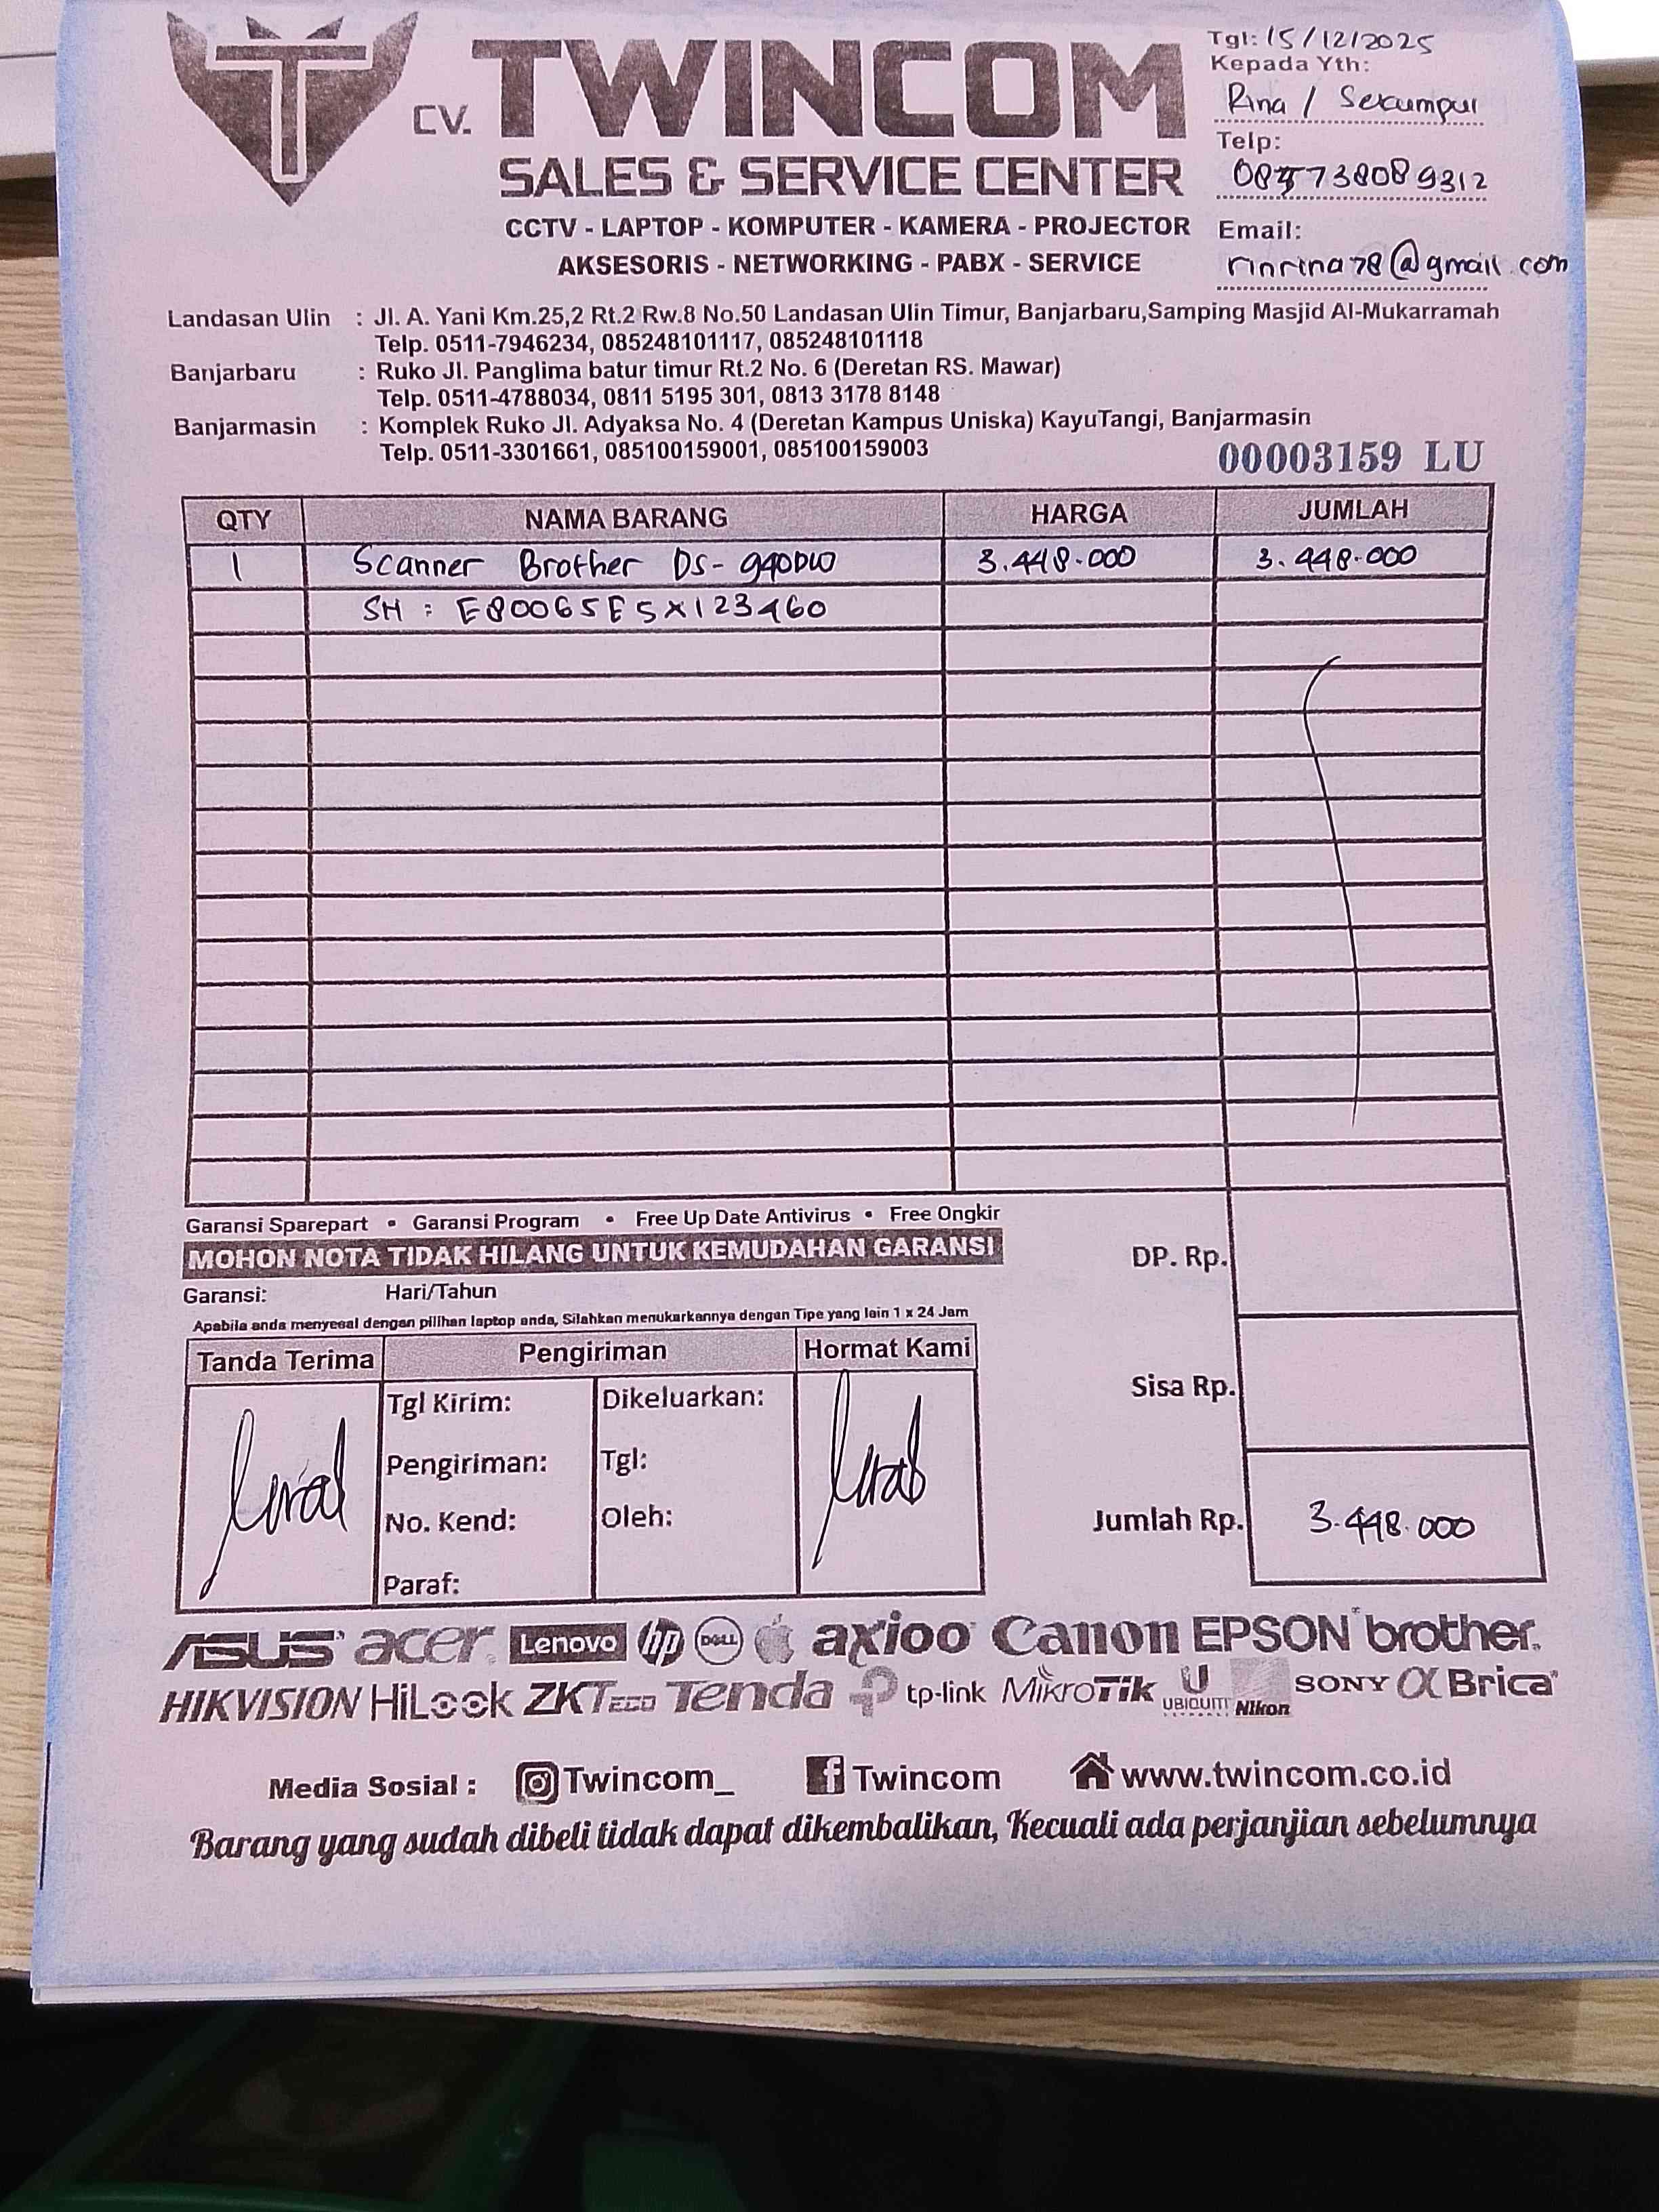 CV. TWINCOM
SALES & SERVICE CENTER
CCTV - LAPTOP - KOMPUTER - KAMERA - PROJECTOR
AKSESORIS - NETWORKING - PABX - SERVICE
Tgl: 15/12/2025
Kepada Yth:
Rina / Sekumpul
Telp:
Email:
rinrina78@gmail.com
Landasan Ulin : Jl. A. Yani Km.25,2 Rt.2 Rw.8 No.50 Landasan Ulin Timur, Banjarbaru,Samping Masjid Al-Mukarramah
Telp. 0511-7946234, 085248101117, 085248101118
Banjarbaru : Ruko Jl. Panglima batur timur Rt.2 No. 6 (Deretan RS. Mawar)
Telp. 0511-4788034, 0811 5195 301, 0813 3178 8148
Banjarmasin : Komplek Ruko Jl. Adyaksa No. 4 (Deretan Kampus Uniska) KayuTangi, Banjarmasin
Telp. 0511-3301661, 085100159001, 085100159003
00003159 LU
QTY NAMA BARANG HARGA JUMLAH
1 Scanner Brother DS-940DW 3.448.000 3.448.000
SN : E80065E5X123460
Garansi Sparepart • Garansi Program • Free Up Date Antivirus • Free Ongkir
MOHON NOTA TIDAK HILANG UNTUK KEMUDAHAN GARANSI
Garansi: Hari/Tahun
Apabila anda menyesal dengan pilihan laptop anda, Silahkan menukarkannya dengan Tipe yang lain 1 x 24 Jam
DP. Rp.
Sisa Rp.
Jumlah Rp. 3.448.000
Tanda Terima Pengiriman Hormat Kami
Tgl Kirim: Dikeluarkan:
Pengiriman: Tgl:
No. Kend: Oleh:
Paraf:
ASUS acer Lenovo hp DELL axioo Canon EPSON brother
HIKVISION HiLook ZKTeco Tenda tp-link MikroTik UBIQUITI Nikon SONY α Brica
Media Sosial : Twincom_ Twincom www.twincom.co.id
Barang yang sudah dibeli tidak dapat dikembalikan, Kecuali ada perjanjian sebelumnya